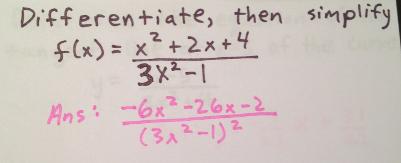 Differentiate, then simplify
f(x) = x² + 2x + 4
3x² - 1
Ans: -6x² - 26x - 2
(3x² - 1)²